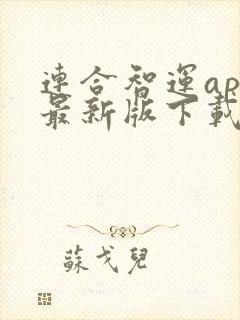 連合智運ap
最新版下載
蘇戈兒